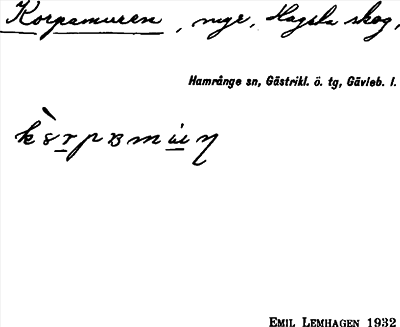 Korpamuren, myr, Hagsta skog,
Hamrånge sn, Gästrikl. ö. tg, Gävleb. l.
EMIL LEMHAGEN 1932